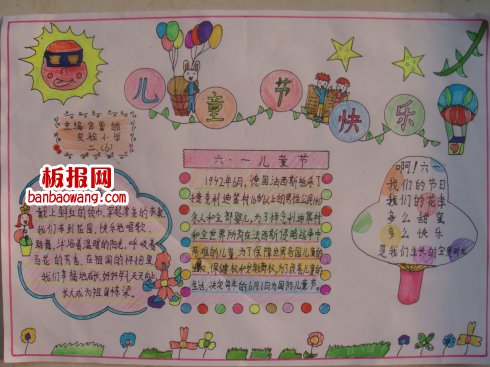 儿童节快乐
主编:
实验小学
二.(6)
板报网
banbaowang.com
献上鲜红的
我们来到花园,快乐地唱歌、
跳舞,沐浴着温暖的阳光,呼吸着
百花的芳香,在祖国的怀抱里
我们幸福地成长,好好学习,天天向上
长大成为祖国栋梁。
六·一儿童节
1942年6月,德国法西斯枪杀了
捷克利迪策村16岁以上的男性公民140
余人和全部婴儿,为了悼念利迪策村
和全世界所有在法西斯侵略战争中
死难的儿童,为了保障世界各国儿童的
生存、保健权和受教育权,为了改善儿童的
生活,决定每年的6月1日为国际儿童节。
啊!六一
我们的节日
我们的花季
多么甜蜜
多么快乐
是我们生长的